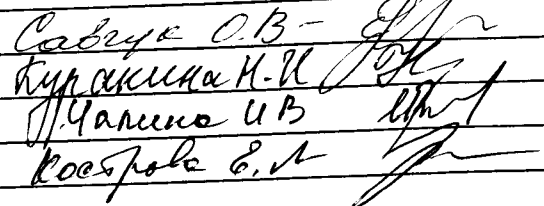 Савчук О.В -
Куракина Н.И
Чапина И В
Кострова Е.Л